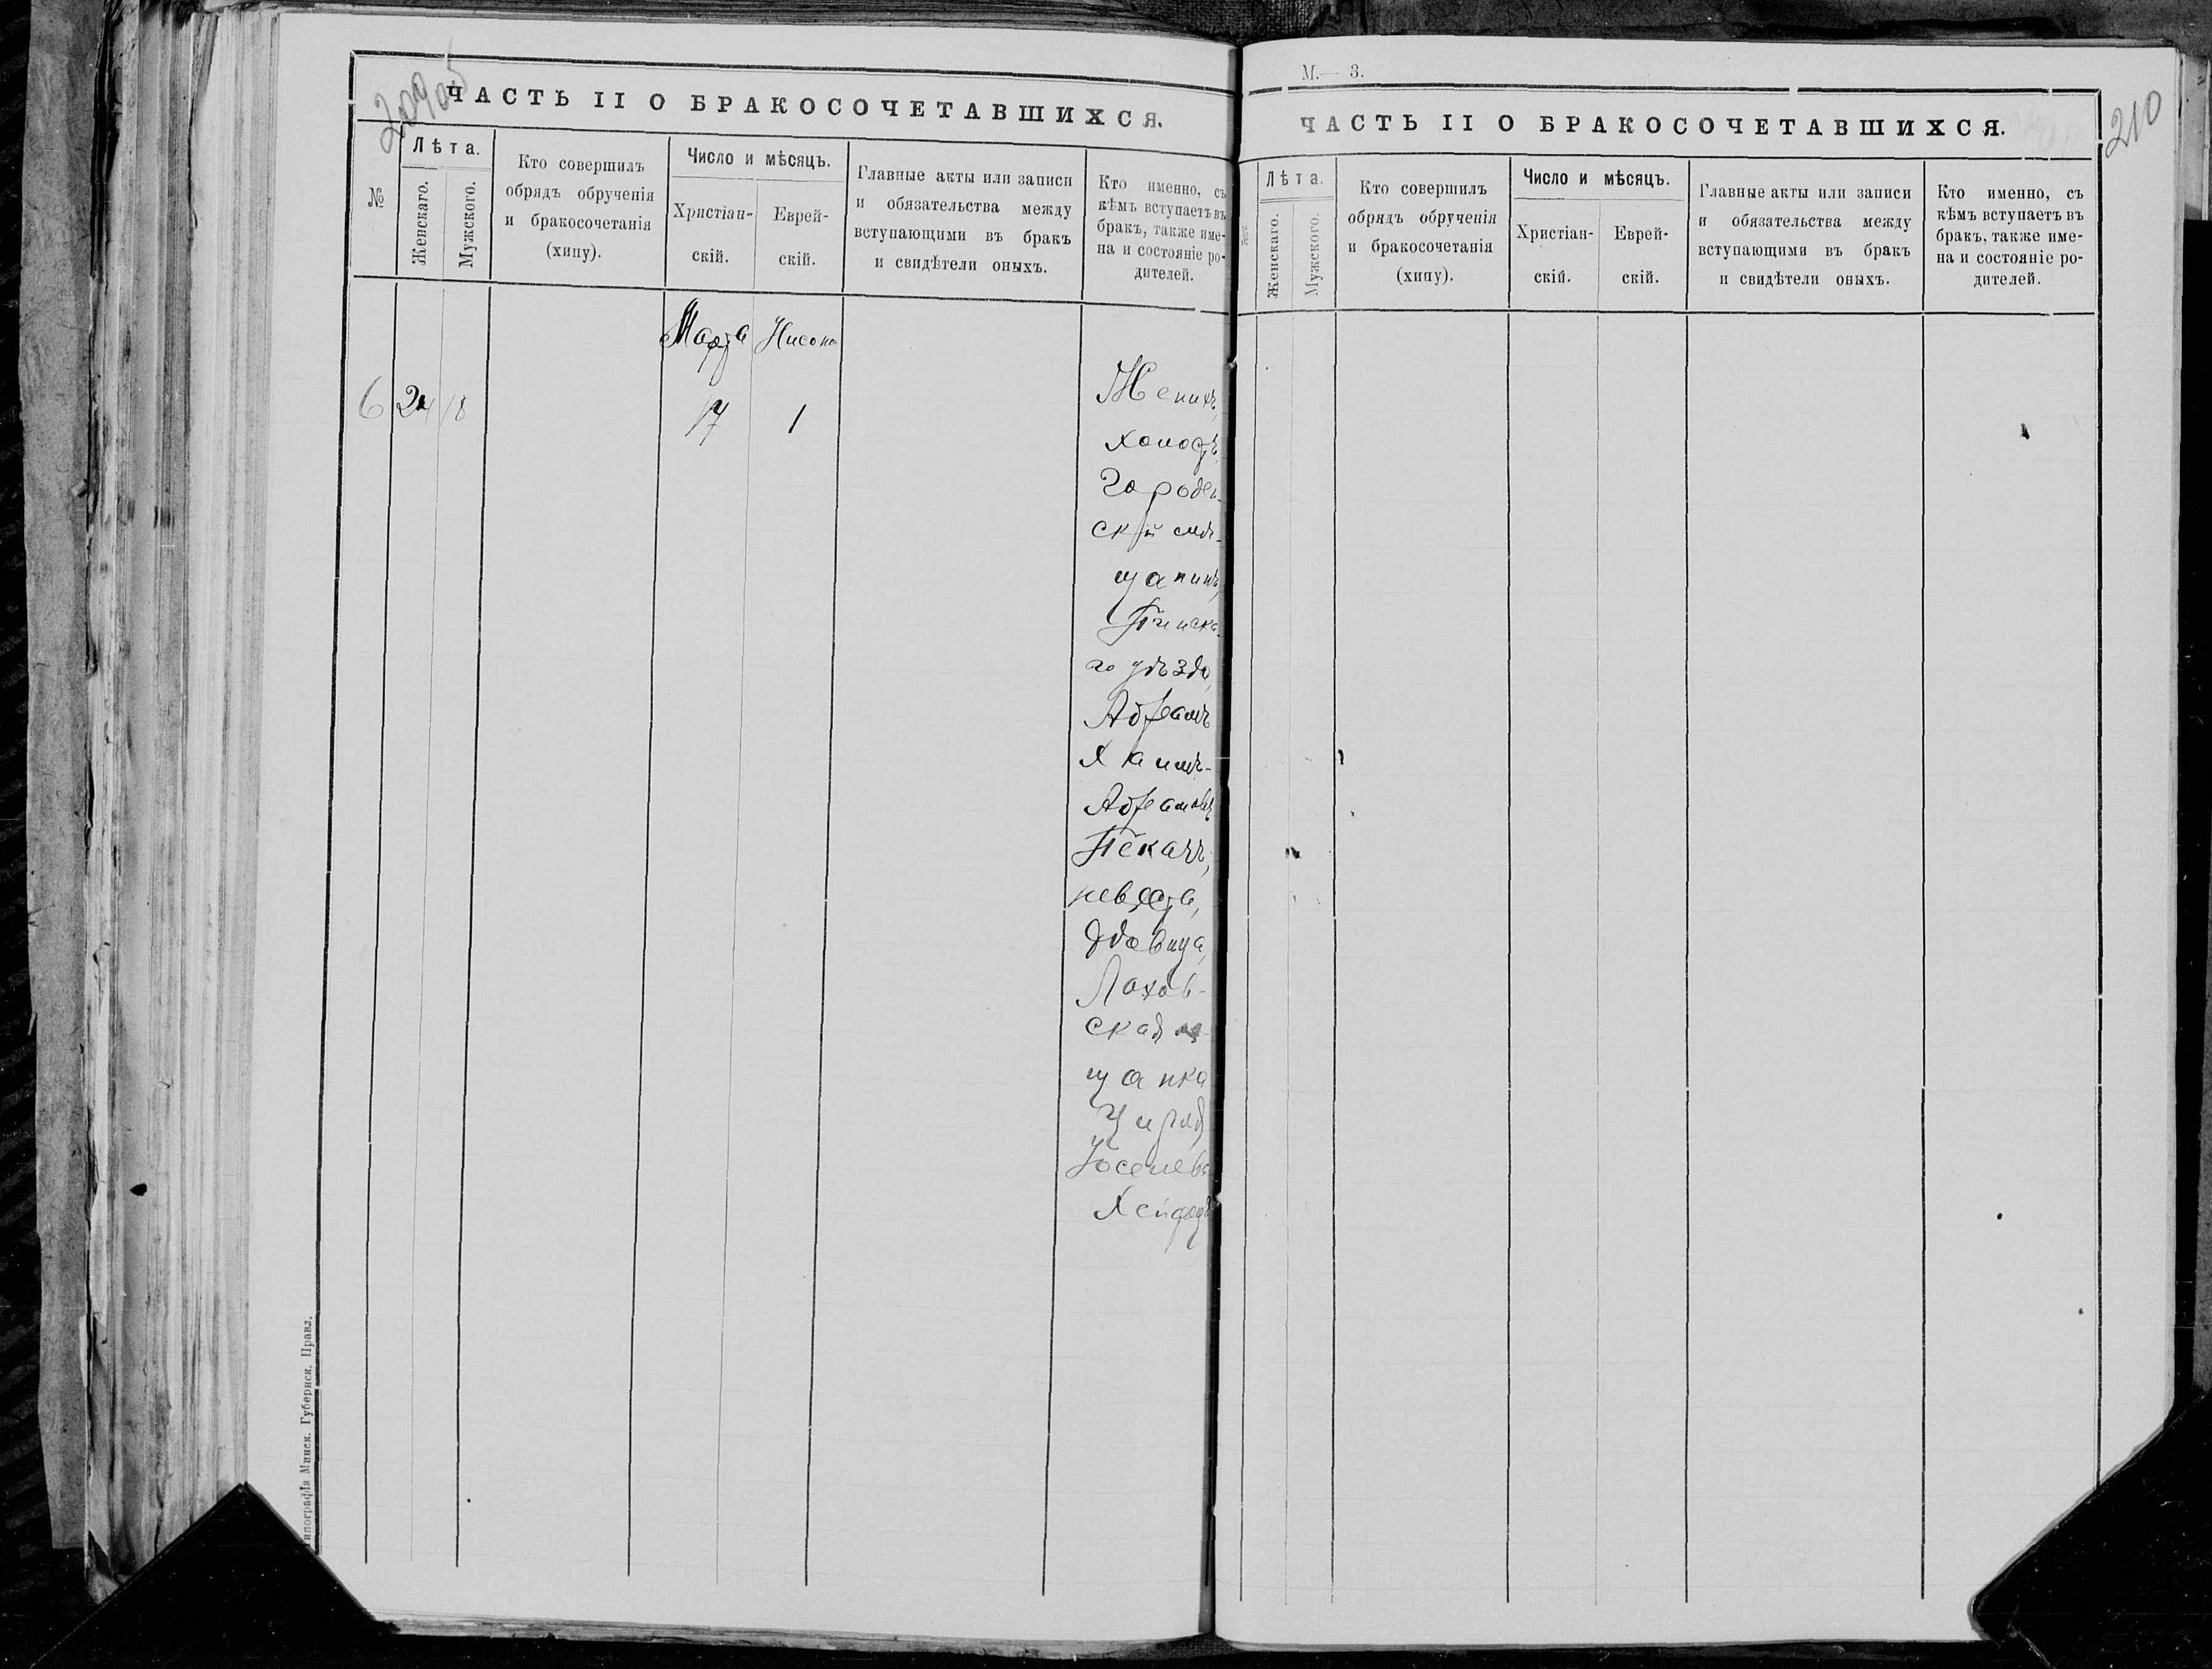 209об
ЧАСТЬ II О БРАКОСОЧЕТАВШИХСЯ.
№
Лѣта.
Женскаго.
Мужского.
Кто совершилъ
обрядъ обрученія
и бракосочетанія
(хипу).
Число и мѣсяцъ.
Христіан-
скій.
Еврей-
скій.
Главные акты или записи
и обязательства между
вступающими въ бракъ
и свидѣтели оныхъ.
Кто именно, съ
кѣмъ вступаетъ въ
бракъ, также име-
на и состояніе ро-
дителей.
Марта Нисона
6 24 18 17 1
Женихъ,
холостъ,
Городен-
скій мѣ-
щанинъ,
Пинска-
го уѣзда,
Абрамъ
Хаимъ
Абрамовъ
Пекачъ,
невѣста,
вдовица,
Лахов-
ская
щанка
Цирля
Іоселева
типографія Минск. Губернск. Правл.
М.— 3.
210
ЧАСТЬ II О БРАКОСОЧЕТАВШИХСЯ.
№
Лѣта.
Женскаго.
Мужского.
Кто совершилъ
обрядъ обрученія
и бракосочетанія
(хипу).
Число и мѣсяцъ.
Христіан-
скій.
Еврей-
скій.
Главные акты или записи
и обязательства между
вступающими въ бракъ
и свидѣтели оныхъ.
Кто именно, съ
кѣмъ вступаетъ въ
бракъ, также име-
на и состояніе ро-
дителей.